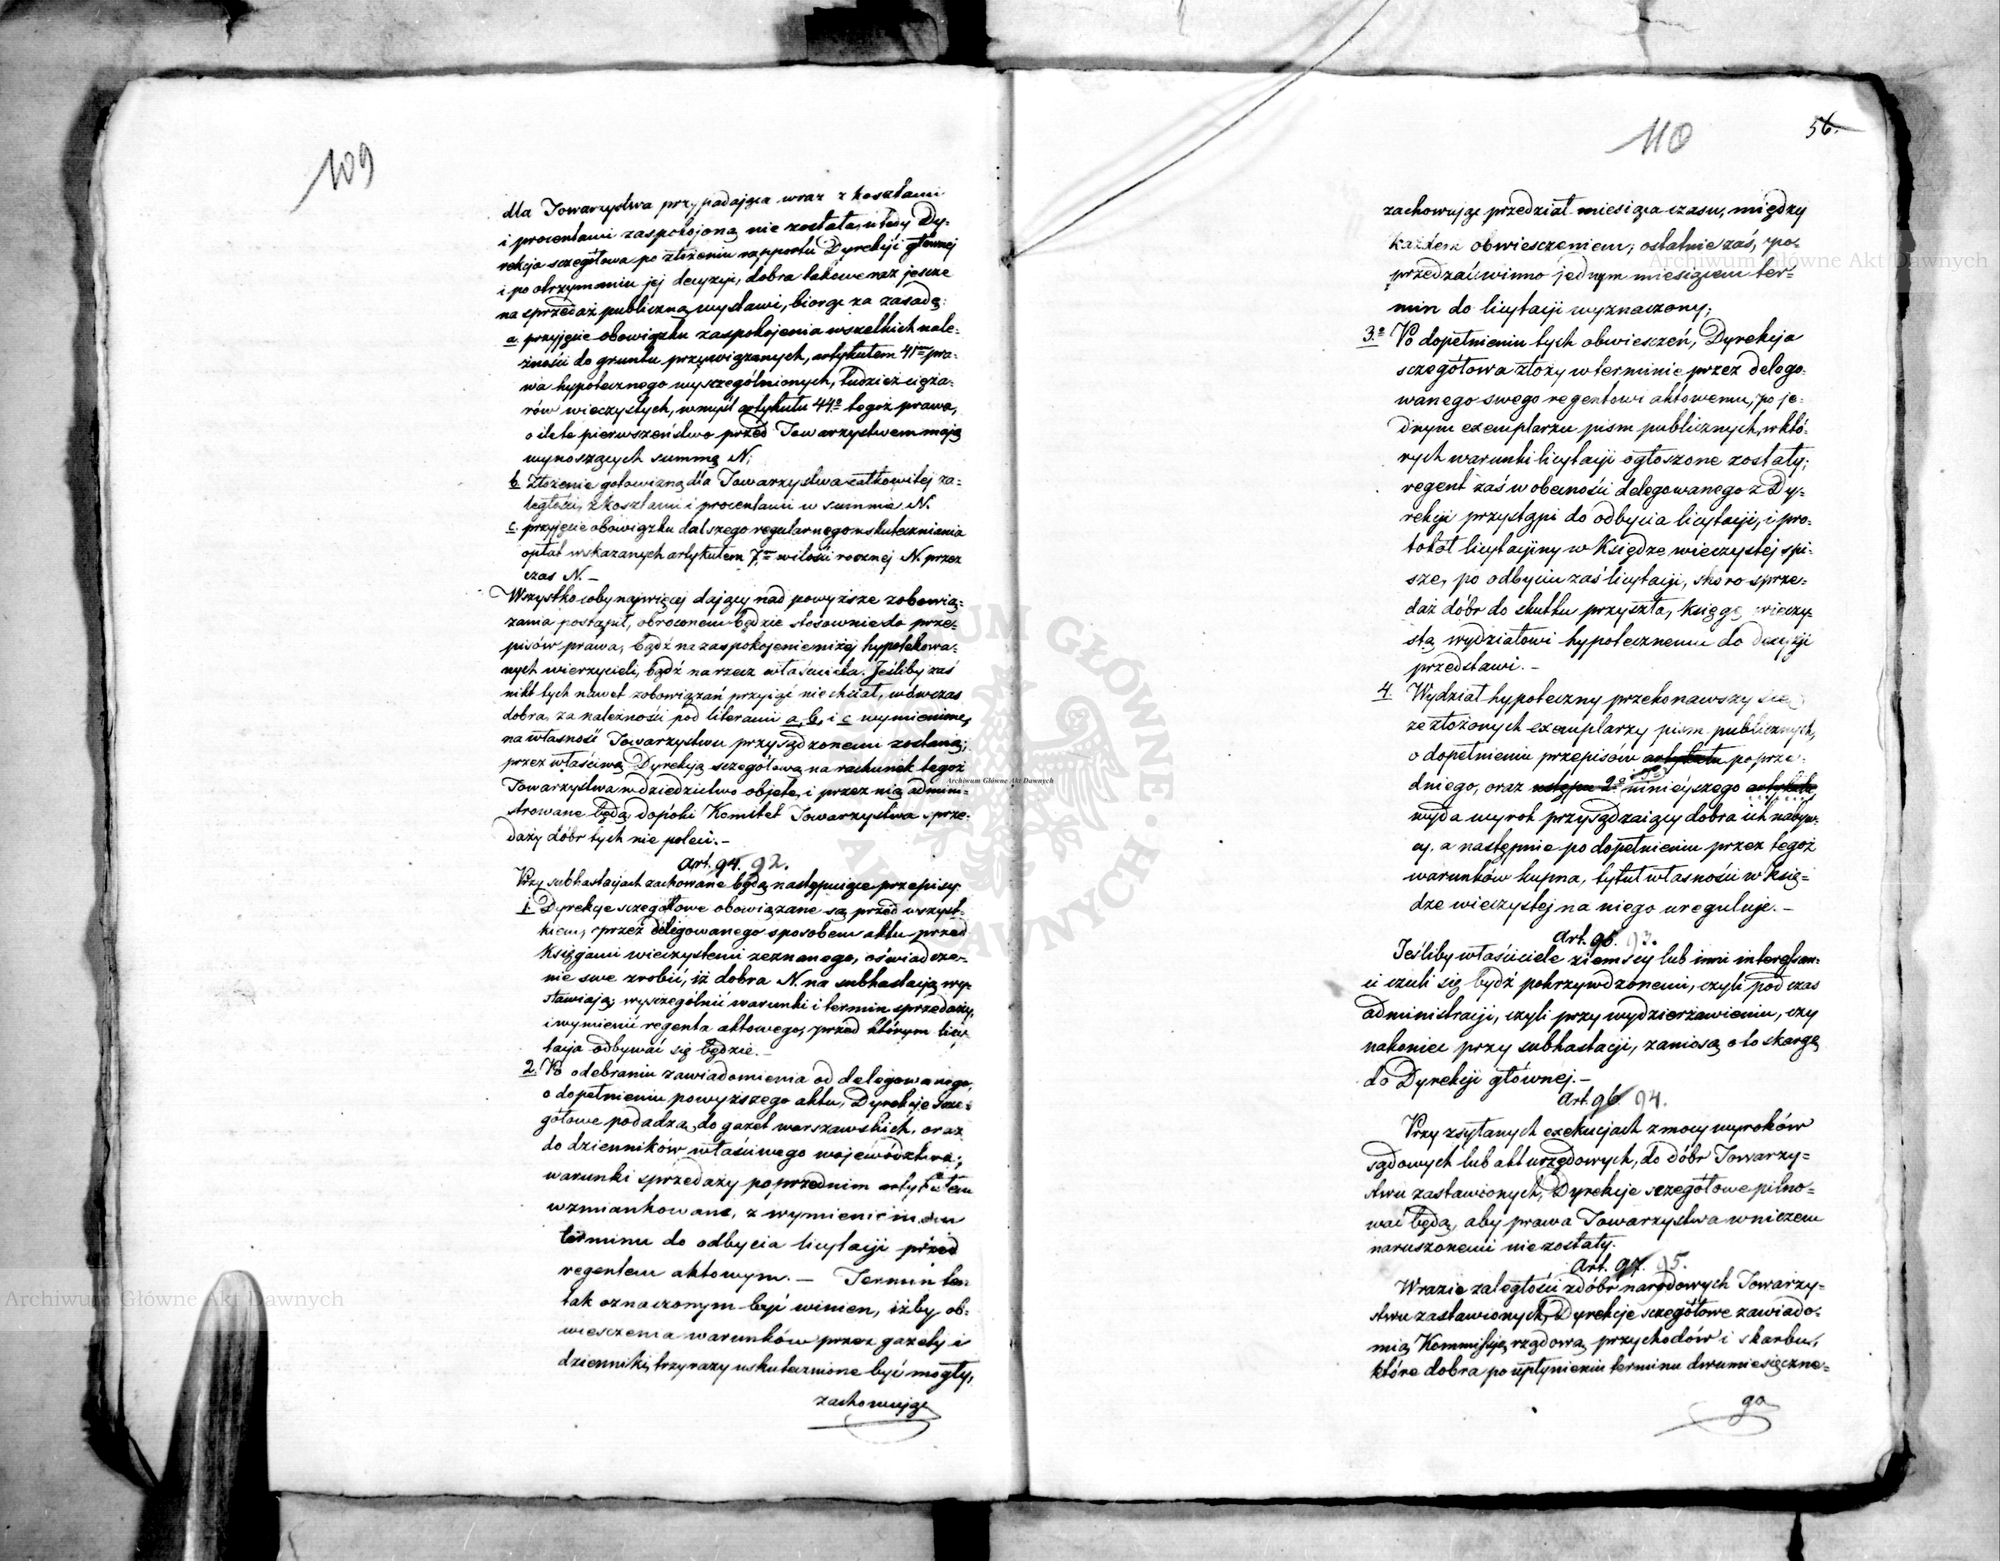 109
dla Towarzystwa przypadająca wraz z kosztami
i procentami zaspokojoną nie została, wtedy Dy-
rekcja sczegółowa po złożeniu rapportu Dyrekcji głównej
i po otrzymaniu jej decyzji, dobra takowe raz jescze
na sprzedaż publiczną wystawi, biorąc za zasadę:
a przyjęcie obowiązku zaspokojenia wszelkich nale-
żności do gruntu przywiązanych, artykułem 41em pra-
wa hypotecznego wyszczególnionych, tudzież cięża-
rów wieczystych, w myśl artykułu 44o tegoż prawa,
o ile te pierwszeństwo przed Towarzystwem mają
wynoszących summę N;
b Złożenie gotowizną dla Towarzystwa całkowitej za-
ległości, z kosztami i procentami w summie N.
c. przyjęcie obowiązku dalszego regularnego uskuteczniania
opłat wskazanych artykułem 7em w ilości rocznej N. przez
czas N. —
Wszystko coby najwięcej dający nad powyższe zobowią-
zania postąpił, obróconem będzie stosownie do prze-
pisów prawa, bądź na zaspokojenie niżej hypotekowa-
nych wierzycieli, bądź na rzecz właściciela. Jeśliby zaś
nikt tych nawet zobowiązań przyjąć nie chciał, wówczas
dobra, za należności pod literami a, b, i c wymienione,
na własność Towarzystwu przysądzonemi zostaną;
przez właściwą Dyrekcją sczegółową na rachunek tegoż
Towarzystwa w dziedzictwo objęte, i przez nią admini-
strowane będą, dopóki Komitet Towarzystwa sprze-
daży dóbr tych nie poleci. —
Art. 94. 92.
Przy subhastacjach zachowane będą następujące przepisy:
1. Dyrekcje sczegółowe obowiązane są przed wszyst-
kiem, przez delegowanego sposobem aktu przed
Księgami wieczystemi zeznanego, oświadcze-
nie swe zrobić, iż dobra N. na subhastacją wy-
stawiają; wyszczególnić warunki i termin sprzedaży,
i wymienić regenta aktowego, przed którym licy-
tacja odbywać się będzie. —
2. Po odebraniu zawiadomienia od delegowanego,
o dopełnieniu powyższego aktu, Dyrekcje scze-
gółowe podadzą, do gazet warszawskich, oraz
do dzienników właściwego województwa;
warunki sprzedaży poprzednim artykułem
wzmiankowane, z wymienieniem
terminu do odbycia licytacji przed
regentem aktowym. — Termin ten
tak oznaczonym być winien, iżby ob-
wiesczenia warunków przez gazety i
dzienniki, trzy razy uskutecznione być mogły,
zachowując
110
56.
zachowując przedział miesiąca czasu, między
każdem obwiesczeniem; ostatnie zaś, po-
przedzać winno jednym miesiącem ter-
min do licytacji wyznaczony;
3.o Po dopełnieniu tych obwiesczeń, Dyrekcja
sczegółowa złoży w terminie przez delego-
wanego swego regentowi aktowemu, po je-
dnym exemplarzu pism publicznych, w któ-
rych warunki licytacji ogłoszone zostały;
regent zaś w obecności delegowanego z Dy-
rekcji przystąpi do odbycia licytacji, i pro-
tokół licytacyjny w Księdze wieczystej spi-
sze, po odbyciu zaś licytacji, skoro sprze-
daż dóbr do skutku przyszła, księgę wieczy-
stą wydziałowi hypotecznemu do decyzji
przedstawi. —
4. Wydział hypoteczny przekonawszy się
ze złożonych exemplarzy pism publicznych,
o dopełnieniu przepisów artykułu poprze-
dniego, oraz ustępu 2o niniejszego artykułu,
wyda wyrok przysądzający dobra ich nabyw-
cy, a następnie po dopełnieniu przez tegoż
warunków kupna, tytuł własności w Księ-
dze wieczystej na niego ureguluje. —
Art. 95. 93.
Jeśliby właściciele ziemscy lub inni interessan-
ci czuli się bydź pokrzywdzonemi, czyli podczas
administracji, czyli przy wydzierżawieniu, czy
nakoniec przy subhastacji, zaniosą o to skargę
do Dyrekcji głównej. —
Art. 96. 94.
Przy zsyłanych exekucjach z mocy wyroków
sądowych lub akt urzędowych, do dóbr Towarzy-
stwu zastawionych, Dyrekcje sczegółowe pilno-
wać będą, aby prawa Towarzystwa w niczem
naruszonemi nie zostały.
Art. 97. 95.
W razie zaległości z dóbr narodowych Towarzy-
stwu zastawionych, Dyrekcje sczegółowe zawiado-
mią Kommissją rządową przychodów i skarbu,
które dobra po upłynieniu terminu dwumiesięczne-
go
Archiwum Główne Akt Dawnych
Archiwum Główne Akt Dawnych
Archiwum Główne Akt Dawnych
ARCHIWUM GŁÓWNE AKT DAWNYCH